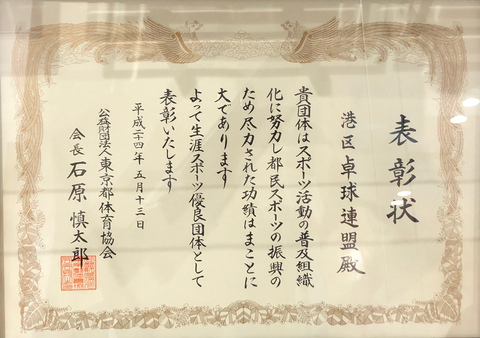 表彰状
港区卓球連盟殿
貴団体はスポーツ活動の普及組織
化に努力し都民スポーツの振興の
ため尽力された功績はまことに
大であります
よって生涯スポーツ優良団体として
表彰いたします
平成二十四年五月十三日
公益財団法人東京都体育協会
会長石原慎太郎